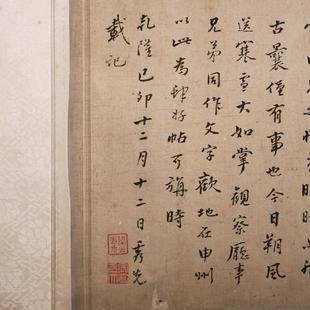 古曩僅有事也今日朔風
送寒雪大如掌觀察廳事
兄弟同作文字歡地在申州
以此為肆好帖可旃時
乾隆己卯十二月十二日秀先
載記